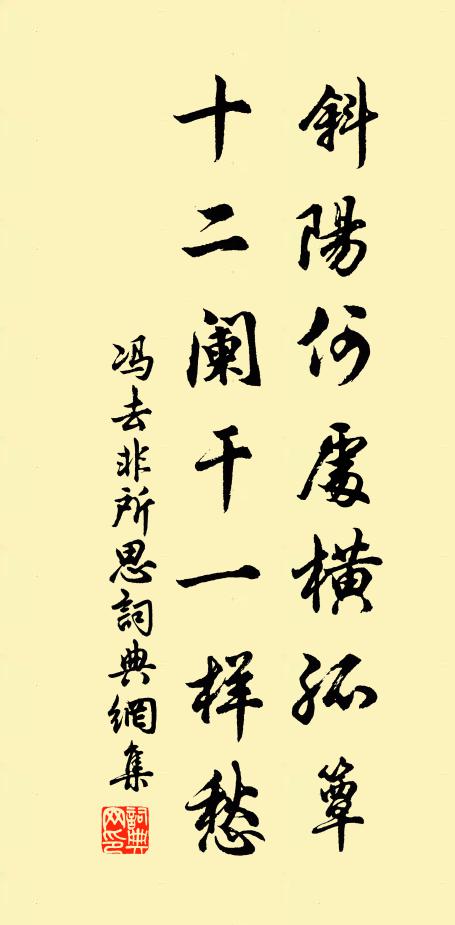 斜陽何處橫孤簟
十二闌干一样愁
冯去非所思詞典網集
詞典網印